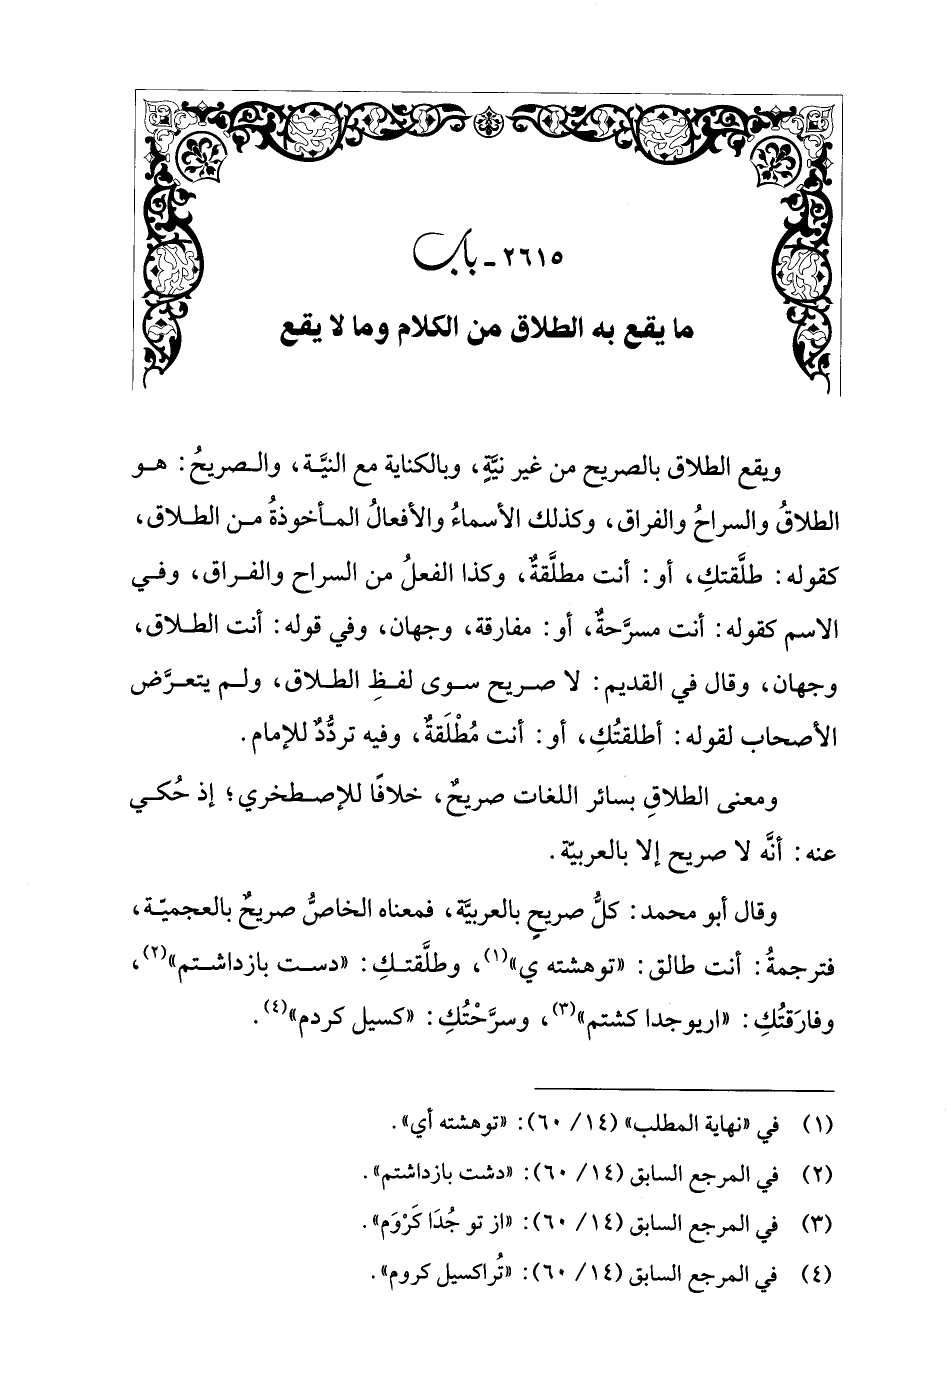 ٢٦١٥ - باب
ما يقع به الطلاق من الكلام وما لا يقع
ويقع الطلاق بالصريح من غير نيَّةٍ، وبالكناية مع النيَّة، والصريحُ: هو
الطلاقُ والسراحُ والفراق، وكذلك الأسماءُ والأفعالُ المأخوذةُ من الطلاق،
كقوله: طلَّقتكِ، أو: أنت مطلَّقةٌ، وكذا الفعلُ من السراح والفراق، وفي
الاسم كقوله: أنت مسرَّحةٌ، أو: مفارقة، وجهان، وفي قوله: أنت الطلاق،
وجهان، وقال في القديم: لا صريح سوى لفظِ الطلاق، ولم يتعرَّض
الأصحاب لقوله: أطلقتُكِ، أو: أنت مُطْلَقةٌ، وفيه تردُّدٌ للإمام.
ومعنى الطلاقِ بسائر اللغات صريحٌ، خلافًا للإصطخري؛ إذ حُكي
عنه: أنَّه لا صريح إلا بالعربيّة.
وقال أبو محمد: كلُّ صريحٍ بالعربيَّة، فمعناه الخاصُّ صريحٌ بالعجميّة،
فترجمةُ: أنت طالق: «توهشته ي»(١)، وطلَّقتكِ: «دست بازداشتم»(٢)،
وفارَقتُكِ: «اريوجدا كشتم»(٣)، وسرَّحْتُكِ: «كسيل كردم»(٤).
(١) في «نهاية المطلب» (١٤/ ٦٠): «توهشته أي».
(٢) في المرجع السابق (١٤/ ٦٠): «دشت بازداشتم».
(٣) في المرجع السابق (١٤/ ٦٠): «از تو جُدَا كَرْوَم».
(٤) في المرجع السابق (١٤/ ٦٠): «تُراكسيل كروم».